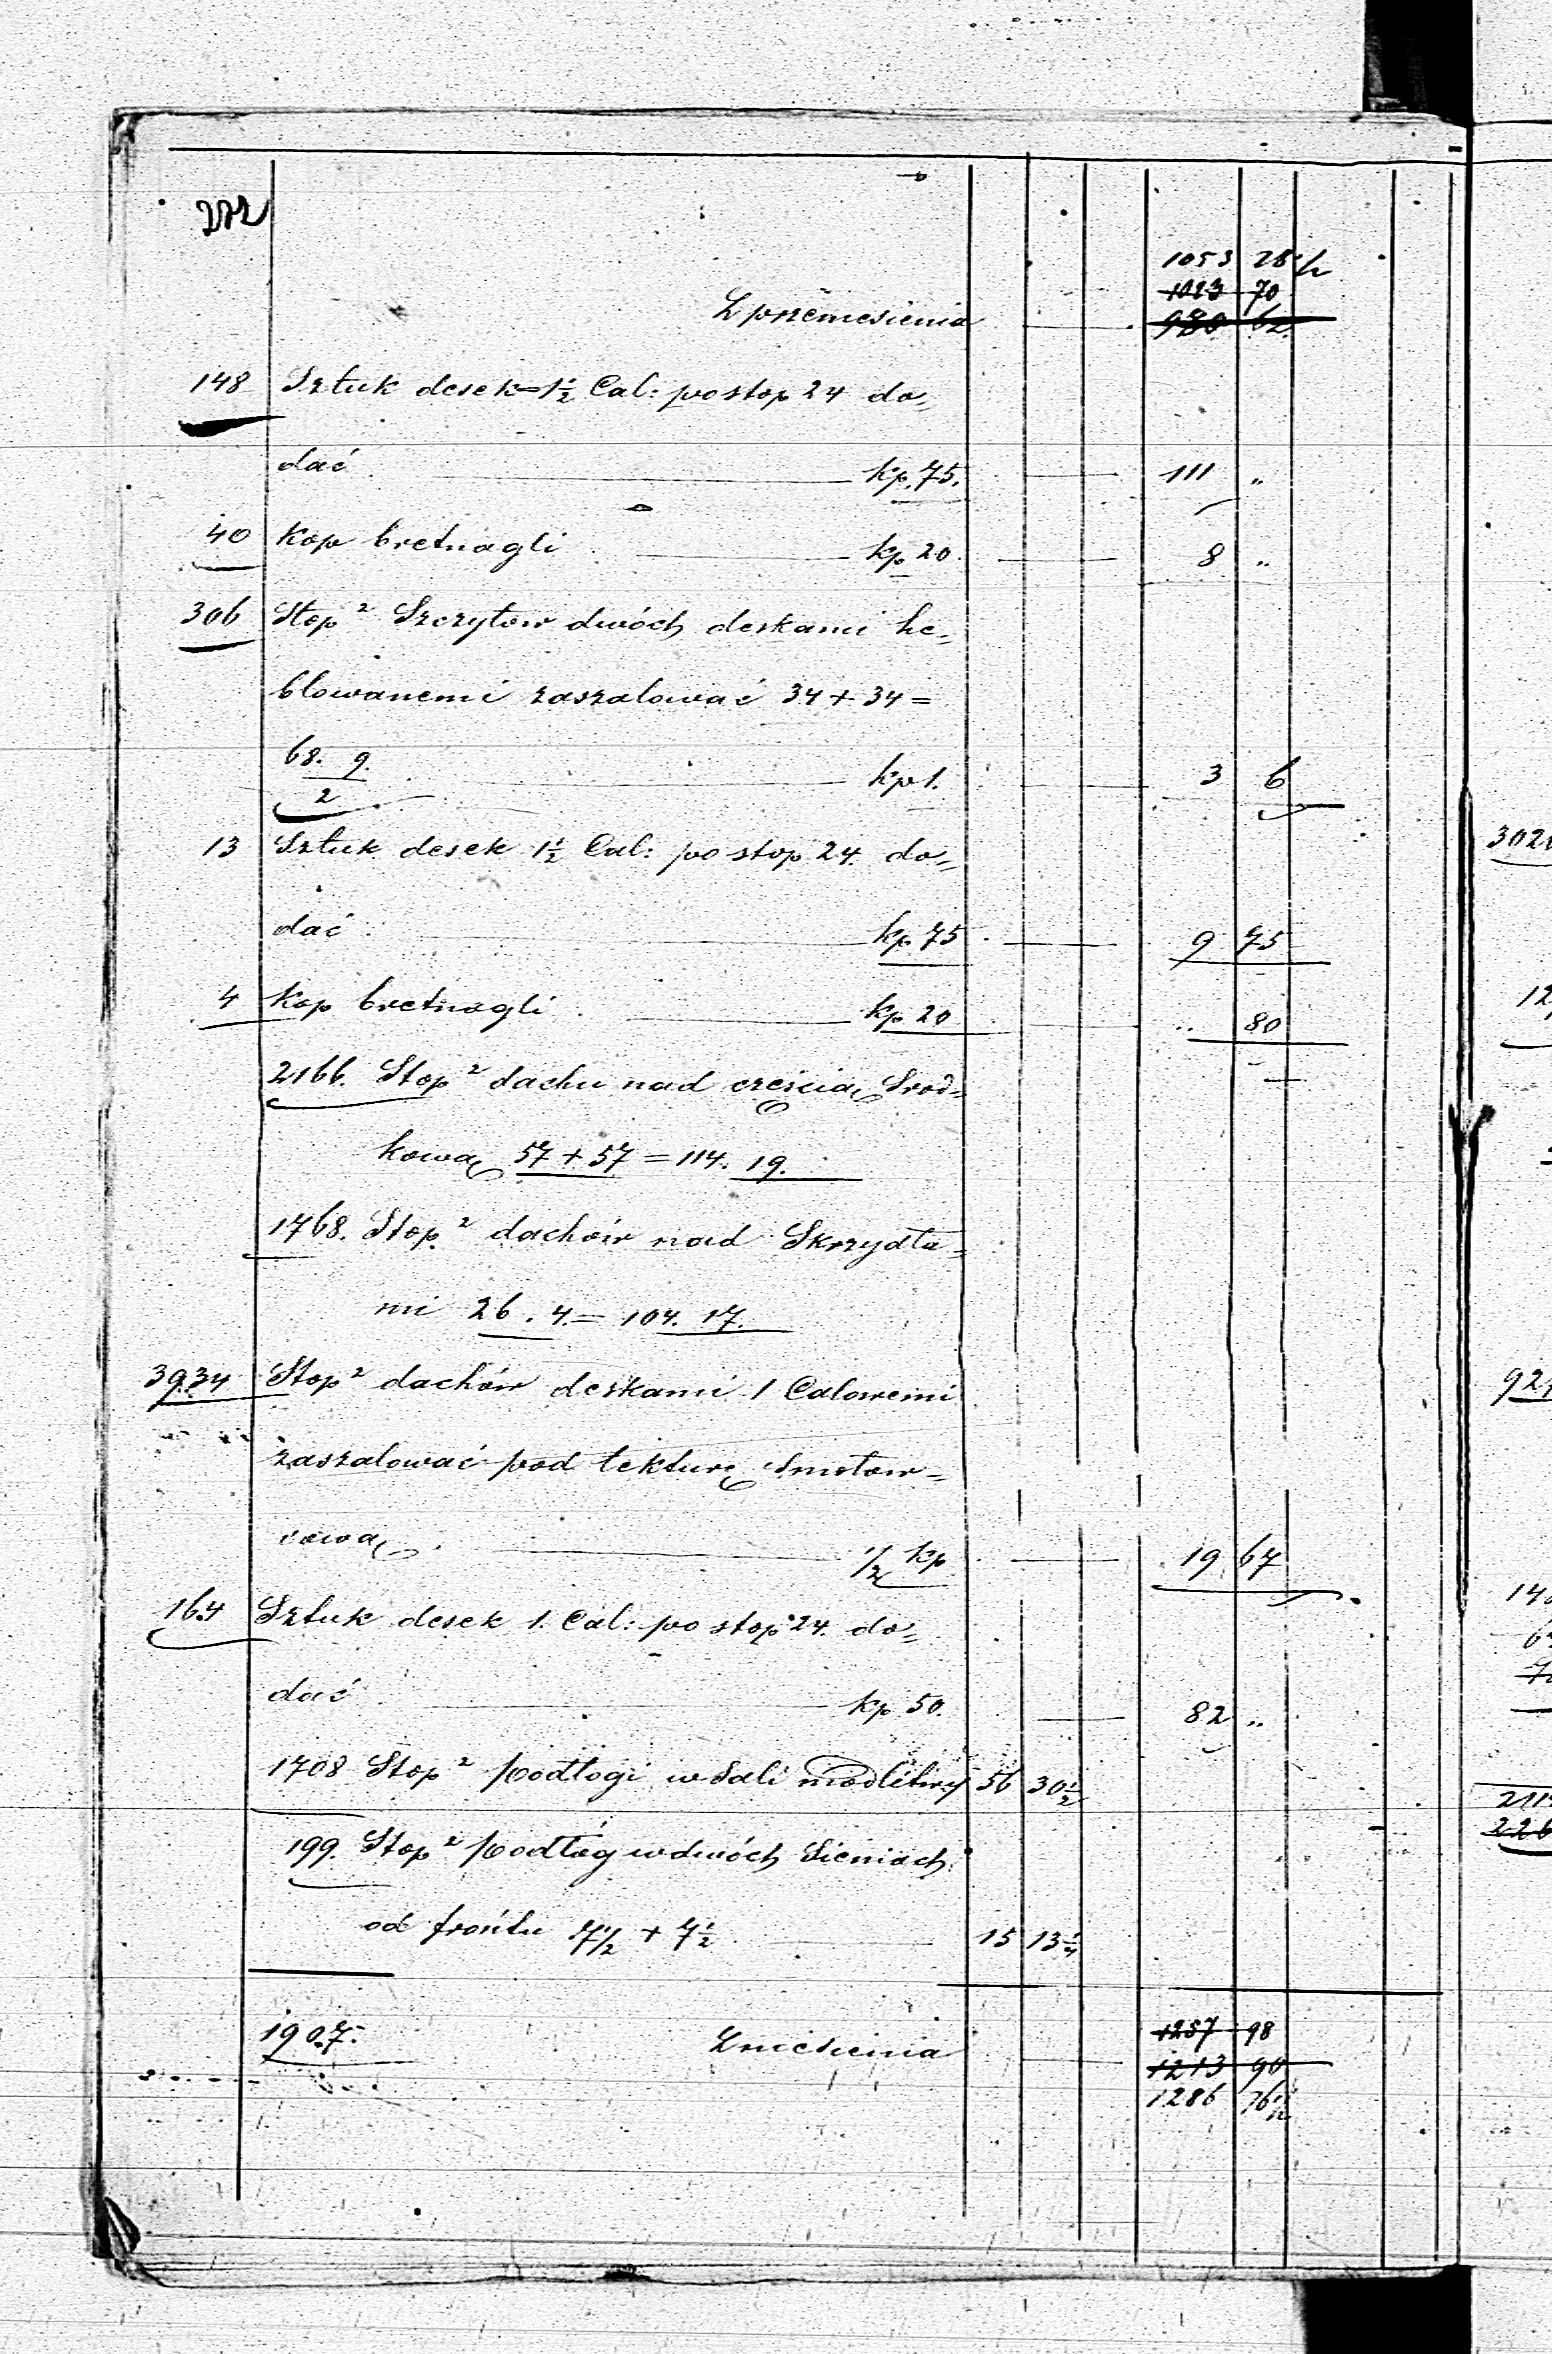 272
1053 28 ½
1023 70
980 62
Z przeniesienia
148 Sztuk desek 1½ Cal: po stop 24 do„
dać kp. 75. 111 „
40 Kop bretnagli kp 20. 8 „
306 Stop² Szczytów dwóch deskami he„
blowanemi zaszalować 34 + 34 =
68. 9.
2
kp 1. 3 6
13 Sztuk desek 1½ Cal: po stop 24. do„
dać kp. 75 9 75
4 Kop bretnagli kp 20 „ 80
2166. Stop² dachu nad częścią Środ„
kową 57 + 57 = 114. 19.
1768. Stop² dachów nad Skrzydła„
mi 26. 4. = 104. 17.
3934 Stop² dachów deskami 1 Calowemi
zaszalować pod tekturę Smołow„
cową ½ kp 19 67
164 Sztuk desek 1. Cal: po stop 24. do„
dać kp 50. 82 „
1708 Stop² podłogi w Sali modlitwy 56 30½
199. Stop² podłóg w dwóch Sieniach
od frontu 7½ + 7½ 15 13¼
1907. Zniesienia 1257 98
1213 90
1286 76½
302
12
92
14
211
226